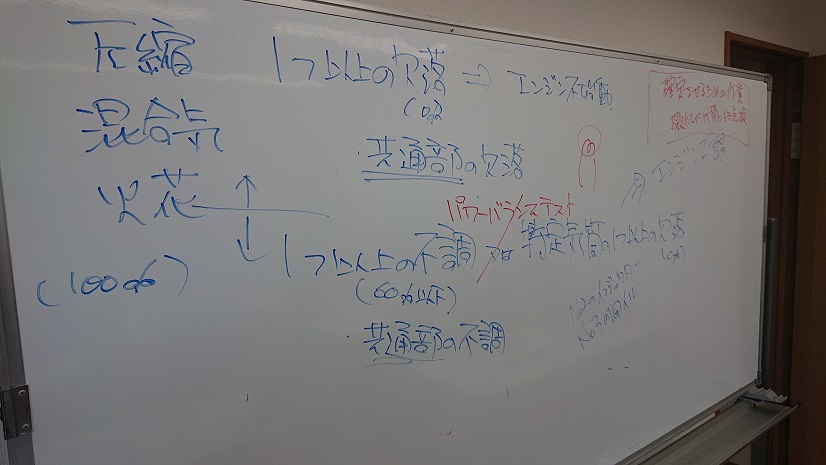 圧縮
混合気
火花
(100%)
1つ以上の欠落 ⇒ エンジン不始動
(0%)
・共通部の欠落
パワーバランステスト
1つ以上の不調 又は 特定気筒の1つ以上の欠落
(60%以下) (0%)
・共通部の不調
⇒ エンジン不調
の